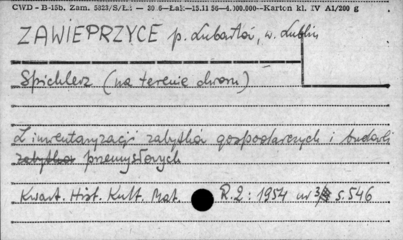 CWD - B-15b. Zam. 5823/S/L: — 20 6—Łak—15.11 56—4.100.000—Karton kl. IV A1/200 g
ZAWIEPRZYCE p. Lubartów, w. Lublin
Spichlerz (na terenie dworu)
Z inwentaryzacji zabytków gospodarczych i budowli
zabytków przemysłowych
Kwart. Hist. Kult. Mat. R.2: 1954 nr 3 s. 546